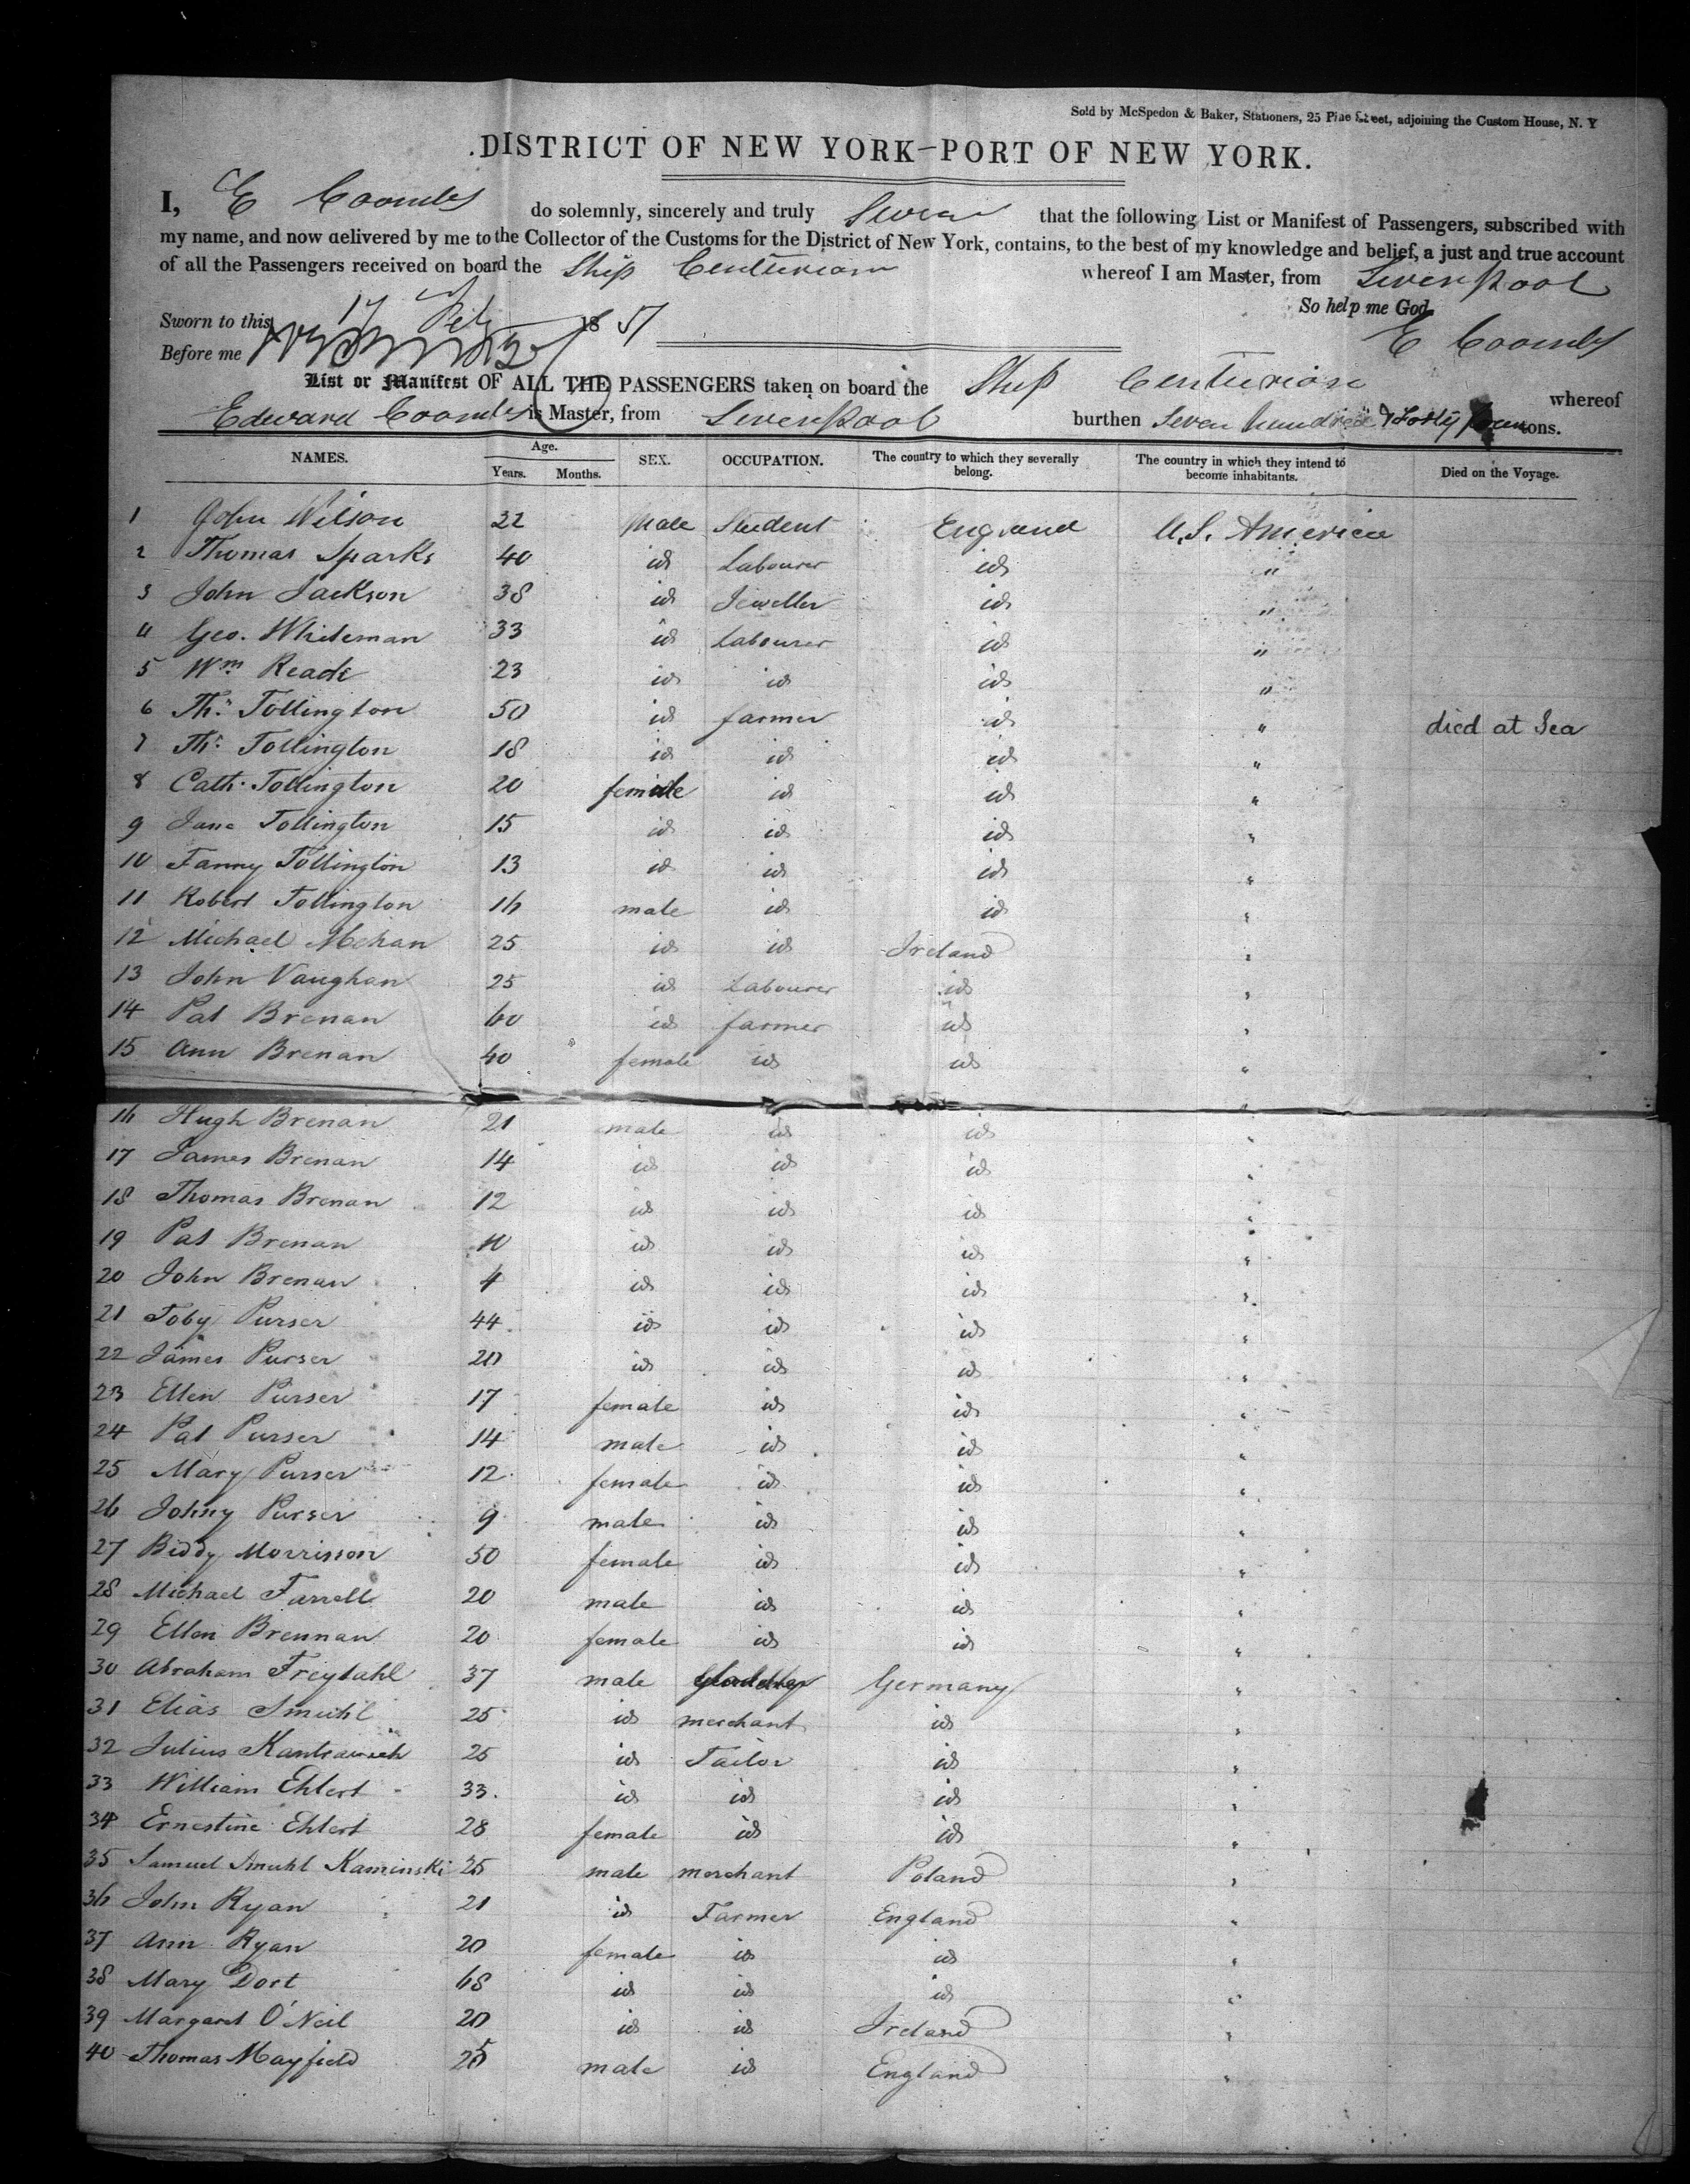 Sold by McSpedon & Baker, Stationers, 25 Pine Street, adjoining the Custom House, N. Y
DISTRICT OF NEW YORK—PORT OF NEW YORK.
I, E Coombs do solemnly, sincerely and truly Swear that the following List or Manifest of Passengers, subscribed with
my name, and now delivered by me to the Collector of the Customs for the District of New York, contains, to the best of my knowledge and belief, a just and true account
of all the Passengers received on board the Ship Centurion whereof I am Master, from Liverpool
So help me God.
Sworn to this 17 Feb 1851 E Coombs
Before me
List or Manifest OF ALL THE PASSENGERS taken on board the Ship Centurion whereof
Edward Coombs is Master, from Liverpool burthen Seven hundred & Forty tons.
NAMES. Age. Years. Months. SEX. OCCUPATION. The country to which they severally belong. The country in which they intend to become inhabitants. Died on the Voyage.
1 John Wilson 22 Male Student England U.S. America
2 Thomas Sparks 40 id Labourer id "
3 John Jackson 38 id Jeweller id "
4 Geo. Whiteman 33 id Labourer id "
5 Wm. Reade 23 id id id "
6 Ths. Tollington 50 id farmer id " died at Sea
7 Ths. Tollington 18 id id id "
8 Cath. Tollington 20 female id id "
9 Jane Tollington 15 id id id "
10 Fanny Tollington 13 id id id "
11 Robert Tollington 16 male id id "
12 Michael Mehan 25 id id Ireland "
13 John Vaughan 25 id Labourer id "
14 Pat Brenan 60 id farmer id "
15 Ann Brenan 40 female id id "
16 Hugh Brenan 21 male id id "
17 James Brenan 14 id id id "
18 Thomas Brenan 12 id id id "
19 Pat Brenan 10 id id id "
20 John Brenan 4 id id id "
21 Toby Purser 44 id id id "
22 James Purser 20 id id id "
23 Ellen Purser 17 female id id "
24 Pat Purser 14 male id id "
25 Mary Purser 12 female id id "
26 Johny Purser 9 male id id "
27 Biddy Morrisson 50 female id id "
28 Michael Farrell 20 male id id "
29 Ellen Brennan 20 female id id "
30 Abraham Freytahl 37 male Germany "
31 Elias Smuhl 25 id merchant id "
32 Julius Kantrawich 25 id Tailor id "
33 William Ehlert 33 id id id "
34 Ernestine Ehlert 28 female id id "
35 Samuel Smuhl Kaminski 25 male merchant Poland "
36 John Ryan 21 id Farmer England "
37 Ann Ryan 20 female id id "
38 Mary Dort 68 id id id "
39 Margaret O'Neil 20 id id Ireland "
40 Thomas Mayfield 25 male id England "